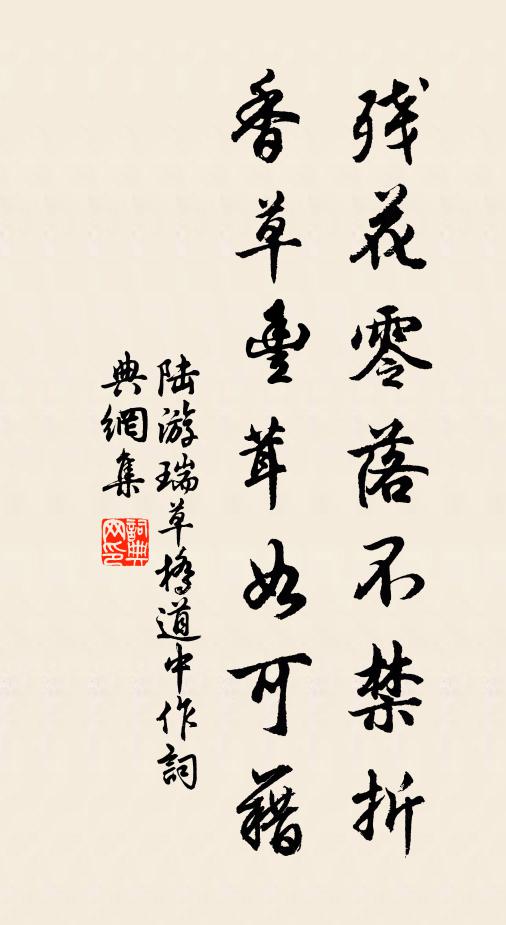 残花零落不禁折
香草豊茸如可藉
陆游瑞草橋道中作詞
典網集
詞典
网印